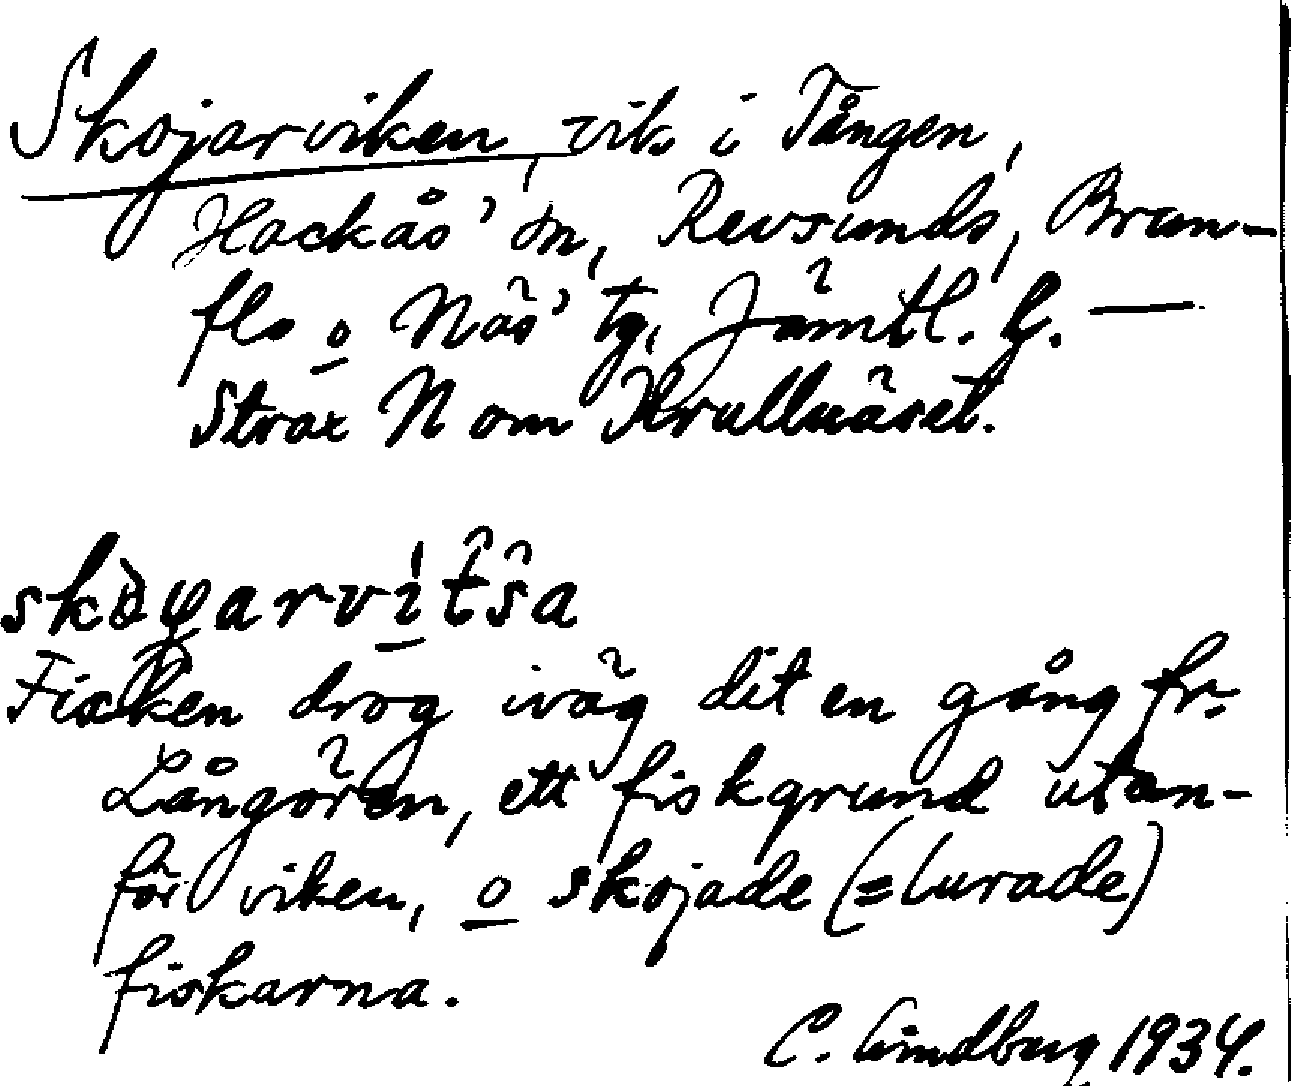 Skojarviken, vik i Tången,
Hackås' sn, Revsunds, Brun-
flo o Näs' tg, Jämtl. l. —
Strax N om Krullnäset.
skòjarvitsa
Fisken drog iväg dit en gång fr.
Långören, ett fiskgrund utan-
för viken, o skojade (=lurade)
fiskarna.
C. Lindberg 1934.